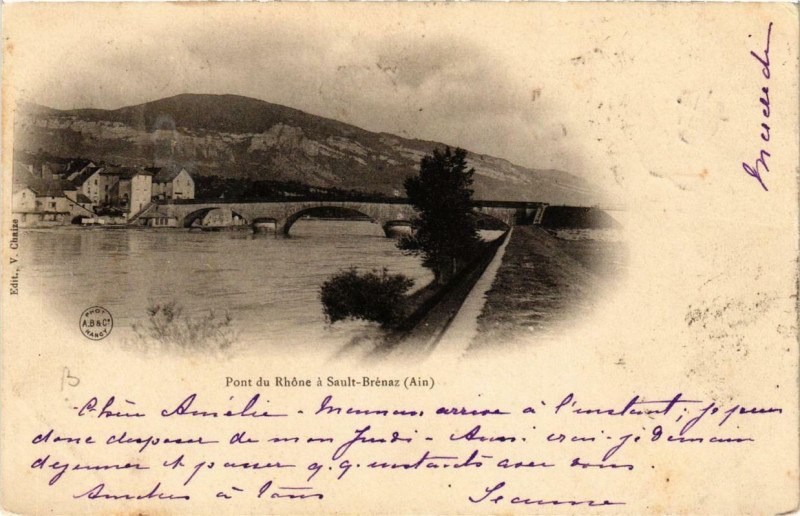 Mercredi
Edit., V. Chaize
PHOT
A.B & Cie
NANCY
Pont du Rhône à Sault-Brénaz (Ain)
B
Chère Amélie - Maman arrive à l'instant; je puis
donc disposer de mon Jeudi - Aussi irai-je demain
déjeuner et passer q.q. instants avec vous.
Amitiés à tous
Jeanne